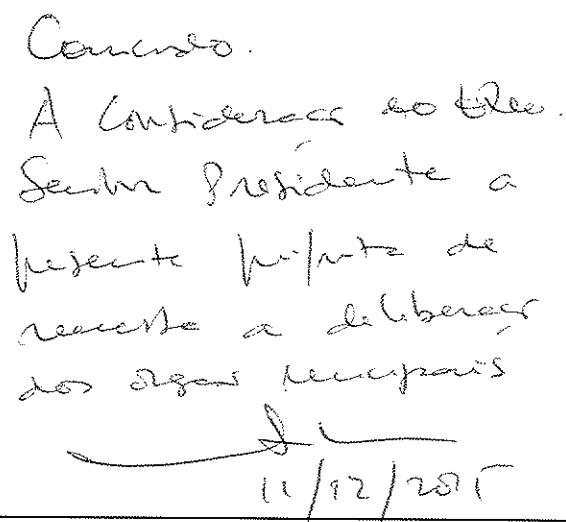 Concordo.
À consideração do Exmo.
Senhor Presidente a
presente proposta de
remessa a deliberação
dos órgãos municipais
11/12/2015